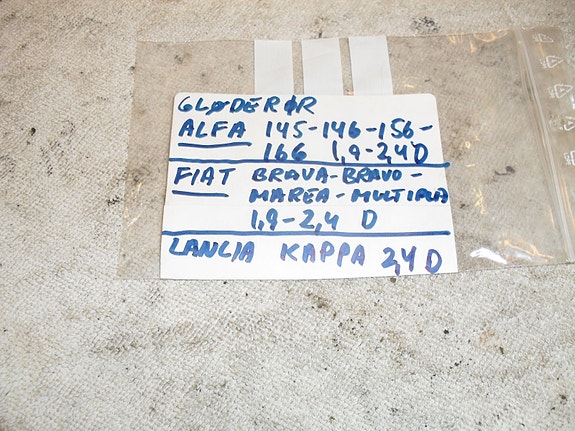 GLØDERØR
ALFA 145-146-156-
166 1,9-2,4 D
FIAT BRAVA-BRAVO-
MAREA-MULTIPLA
1,9-2,4 D
LANCIA KAPPA 2,4 D